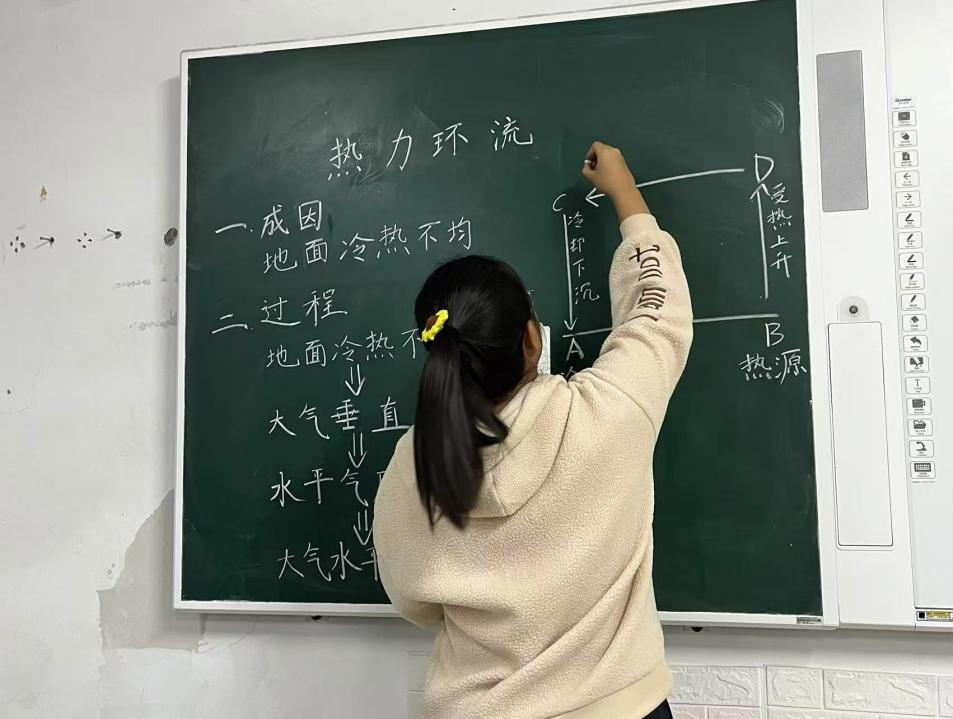 热力环流
一.成因
地面冷热不均
二.过程
地面冷热
大气垂直
水平气
大气水平
C
冷却下沉
A
D
受热上升
B
热源